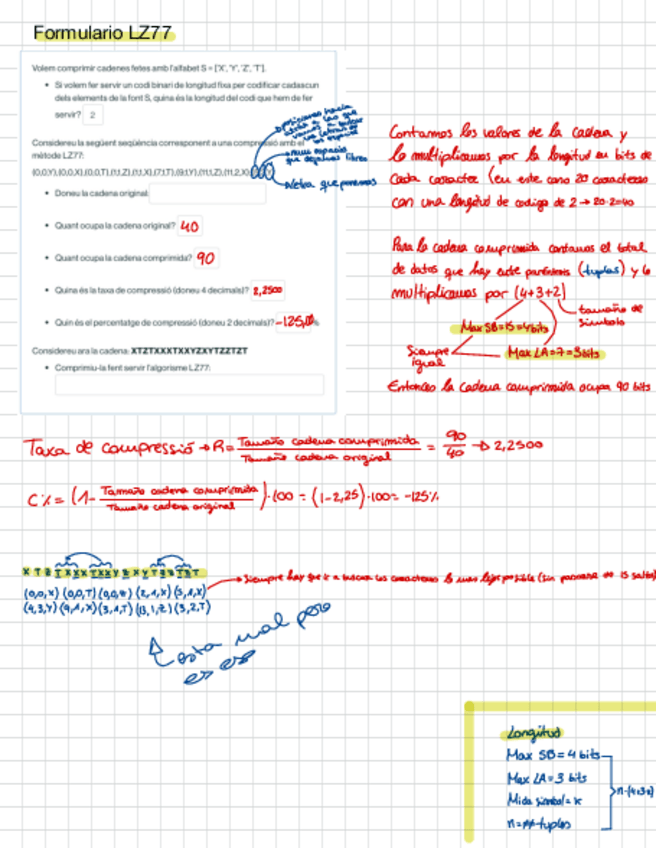 Formulario LZ77
Volem comprimir cadenes fetes amb l'alfabet S = ['X', 'Y', 'Z', 'T'].
• Si volem fer servir un codi binari de longitud fixa per codificar cadascun
dels elements de la font S, quina és la longitud del codi que hem de fer
servir? 2
Considereu la següent seqüència corresponent a una compressió amb el
mètode LZ77:
• Doneu la cadena original:
• Quant ocupa la cadena original? 40
• Quant ocupa la cadena comprimida? 90
• Quina és la taxa de compressió (doneu 4 decimals)? 2,2500
• Quin és el percentatge de compressió (doneu 2 decimals)? -125,00%
Considereu ara la cadena: XTZTXXXTXXYZXYTZZTZT
• Comprimiu-la fent servir l'algorisme LZ77:
num espacios
que dejamos libres
letra que ponemos
Contamos los valores de la cadena y
lo multiplicamos por la longitud en bits de
cada caracter (en este caso 20 caracteres
con una longitud de codigo de 2 → 20·2=40
Para la cadena comprimida contamos el total
de datos que hay entre paréntesis (tuplas) y lo
multiplicamos por (4+3+2)
tamaño de
símbolo
Max SB=15=4bits
Siempre
igual
Max LA=7=3bits
Entonces la cadena comprimida ocupa 90 bits
Taxa de compressió → R= Tamaño cadena comprimida / Tamaño cadena original = 90/40 → 2,2500
C%= (1- Tamaño cadena comprimida / Tamaño cadena original )·100 = (1-2,25)·100= -125%
→ Siempre hay que ir a buscar los caracteres lo mas lejos posible (sin pasarse de 15 saltos)
(0,0,X) (0,0,T) (0,0,Z) (2,1,X) (5,1,X)
(4,3,Y) (9,1,X) (3,1,T) (13,1,Z) (3,2,T)
esta mal pero
es
Longitud
Max SB = 4 bits
Max LA = 3 bits
Mida símbol = x
n = # tuplas